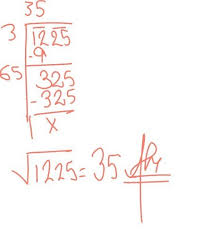 35
3 1225
-9
65 325
-325
x
√1225 = 35 Ans